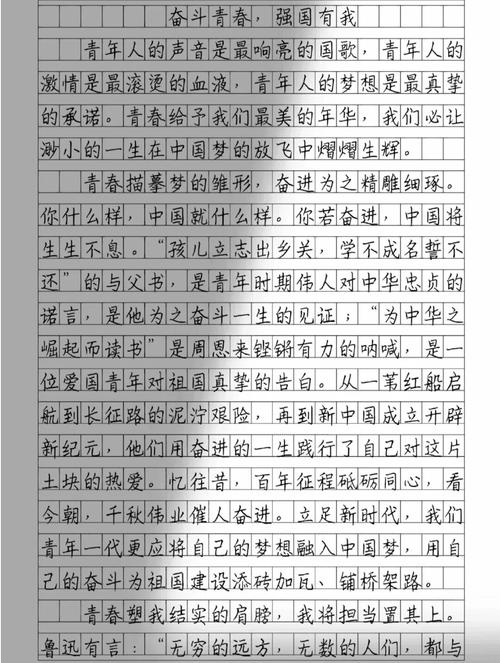 奋斗青春，强国有我
青年人的声音是最响亮的国歌，青年人的
激情是最滚烫的血液，青年人的梦想是最真挚
的承诺。青春给予我们最美的年华，我们必让
渺小的一生在中国梦的放飞中熠熠生辉。
青春描摹梦的雏形，奋进为之精雕细琢。
你什么样，中国就什么样。你若奋进，中国将
生生不息。“孩儿立志出乡关，学不成名誓不
还”的与父书，是青年时期伟人对中华忠贞的
诺言，是他为之奋斗一生的见证；“为中华之
崛起而读书”是周恩来铿锵有力的呐喊，是一
位爱国青年对祖国真挚的告白。从一苇红船启
航到长征路的泥泞艰险，再到新中国成立开辟
新纪元，他们用奋进的一生践行了自己对这片
土块的热爱。忆往昔，百年征程砥砺同心，看
今朝，千秋伟业催人奋进。立足新时代，我们
青年一代更应将自己的梦想融入中国梦，用自
己的奋斗为祖国建设添砖加瓦、铺桥架路。
青春塑我结实的肩膀，我将担当置其上。
鲁迅有言：“无穷的远方，无数的人们，都与